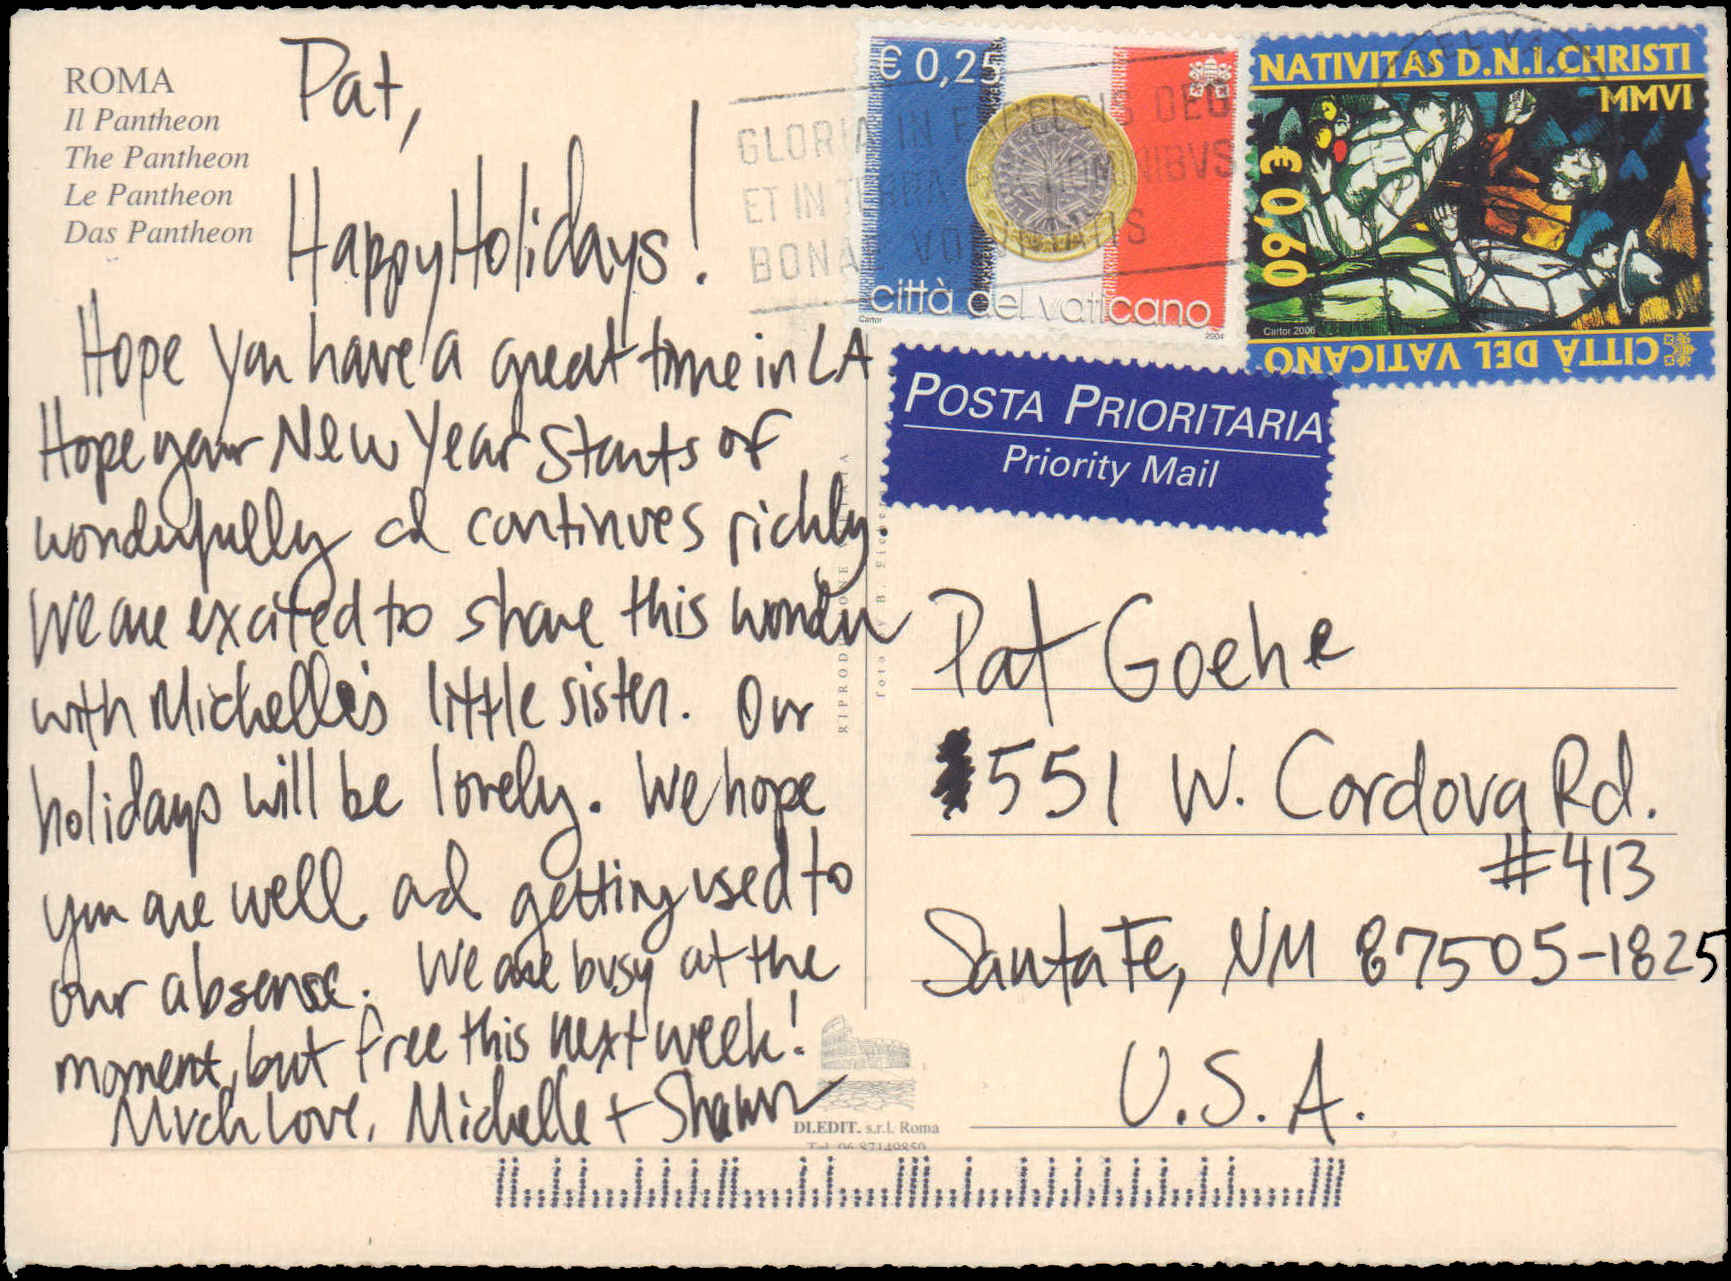 ROMA
Il Pantheon
The Pantheon
Le Pantheon
Das Pantheon
Pat,
Happy Holidays!
Hope you have a great time in LA
Hope your New Year starts of
wonderfully ad continues richly
We are excited to share this wonder
with Michelle's little sister. Our
holidays will be lovely. We hope
you are well ad getting used to
our absense. We are busy at the
moment, but free this next week!
Much Love, Michelle + Shawn
GLORIA IN EXCELSIS DEO
ET IN TERRA HOMINIBVS
BONAE VOLVNTATIS
€ 0,25
città del vaticano
Cartor
2004
NATIVITAS D.N.I.CHRISTI
MMVI
€0,60
Cartor 2006
CITTÀ DEL VATICANO
POSTA PRIORITARIA
Priority Mail
Pat Goehe
551 W. Cordova Rd.
#413
Santa Fe, NM 87505-1825
U.S.A.
DI.EDIT. s.r.l. Roma
Tel. 06 87149850